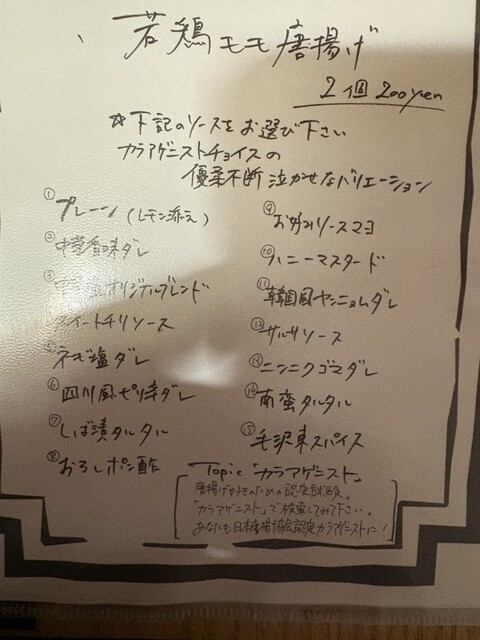 若鶏モモ唐揚げ
2個 200yen
☆下記のソースをお選び下さい
カラアゲニストチョイスの
優柔不断泣かせなバリエーション
① プレーン(レモン添え)
② 中華香味ダレ
③ オリジナルブレンド
スイートチリソース
⑤ ネギ塩ダレ
⑥ 四川風ピリ辛ダレ
⑦ しば漬タルタル
⑧ おろしポン酢
⑨ お好みソースマヨ
⑩ ハニーマスタード
⑪ 韓国風ヤンニョムダレ
⑫ サルサソース
⑬ ニンニクゴマダレ
⑭ 南蛮タルタル
⑮ 毛沢東スパイス
Topic「カラアゲニスト」
唐揚げ好きのための認定試験。
「カラアゲニスト」で検索してみて下さい。
あなたも日本唐揚協会認定カラアゲニストに!